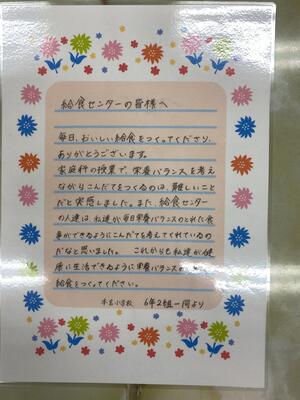 給食センターの皆様へ
毎日、おいしい給食をつくってくださり、
ありがとうございます。
家庭科の授業で、栄養バランスを考え
ながらこんだてをつくるのは、難しいこと
だと実感しました。また、給食センター
の人達は、私達が毎日栄養バランスのとれた食
事ができるようにこんだてを考えてくれているの
だなと思いました。 これからも私達が健
康に生活できるように栄養バランス
給食をつくってください。
小学校 6年2組一同より